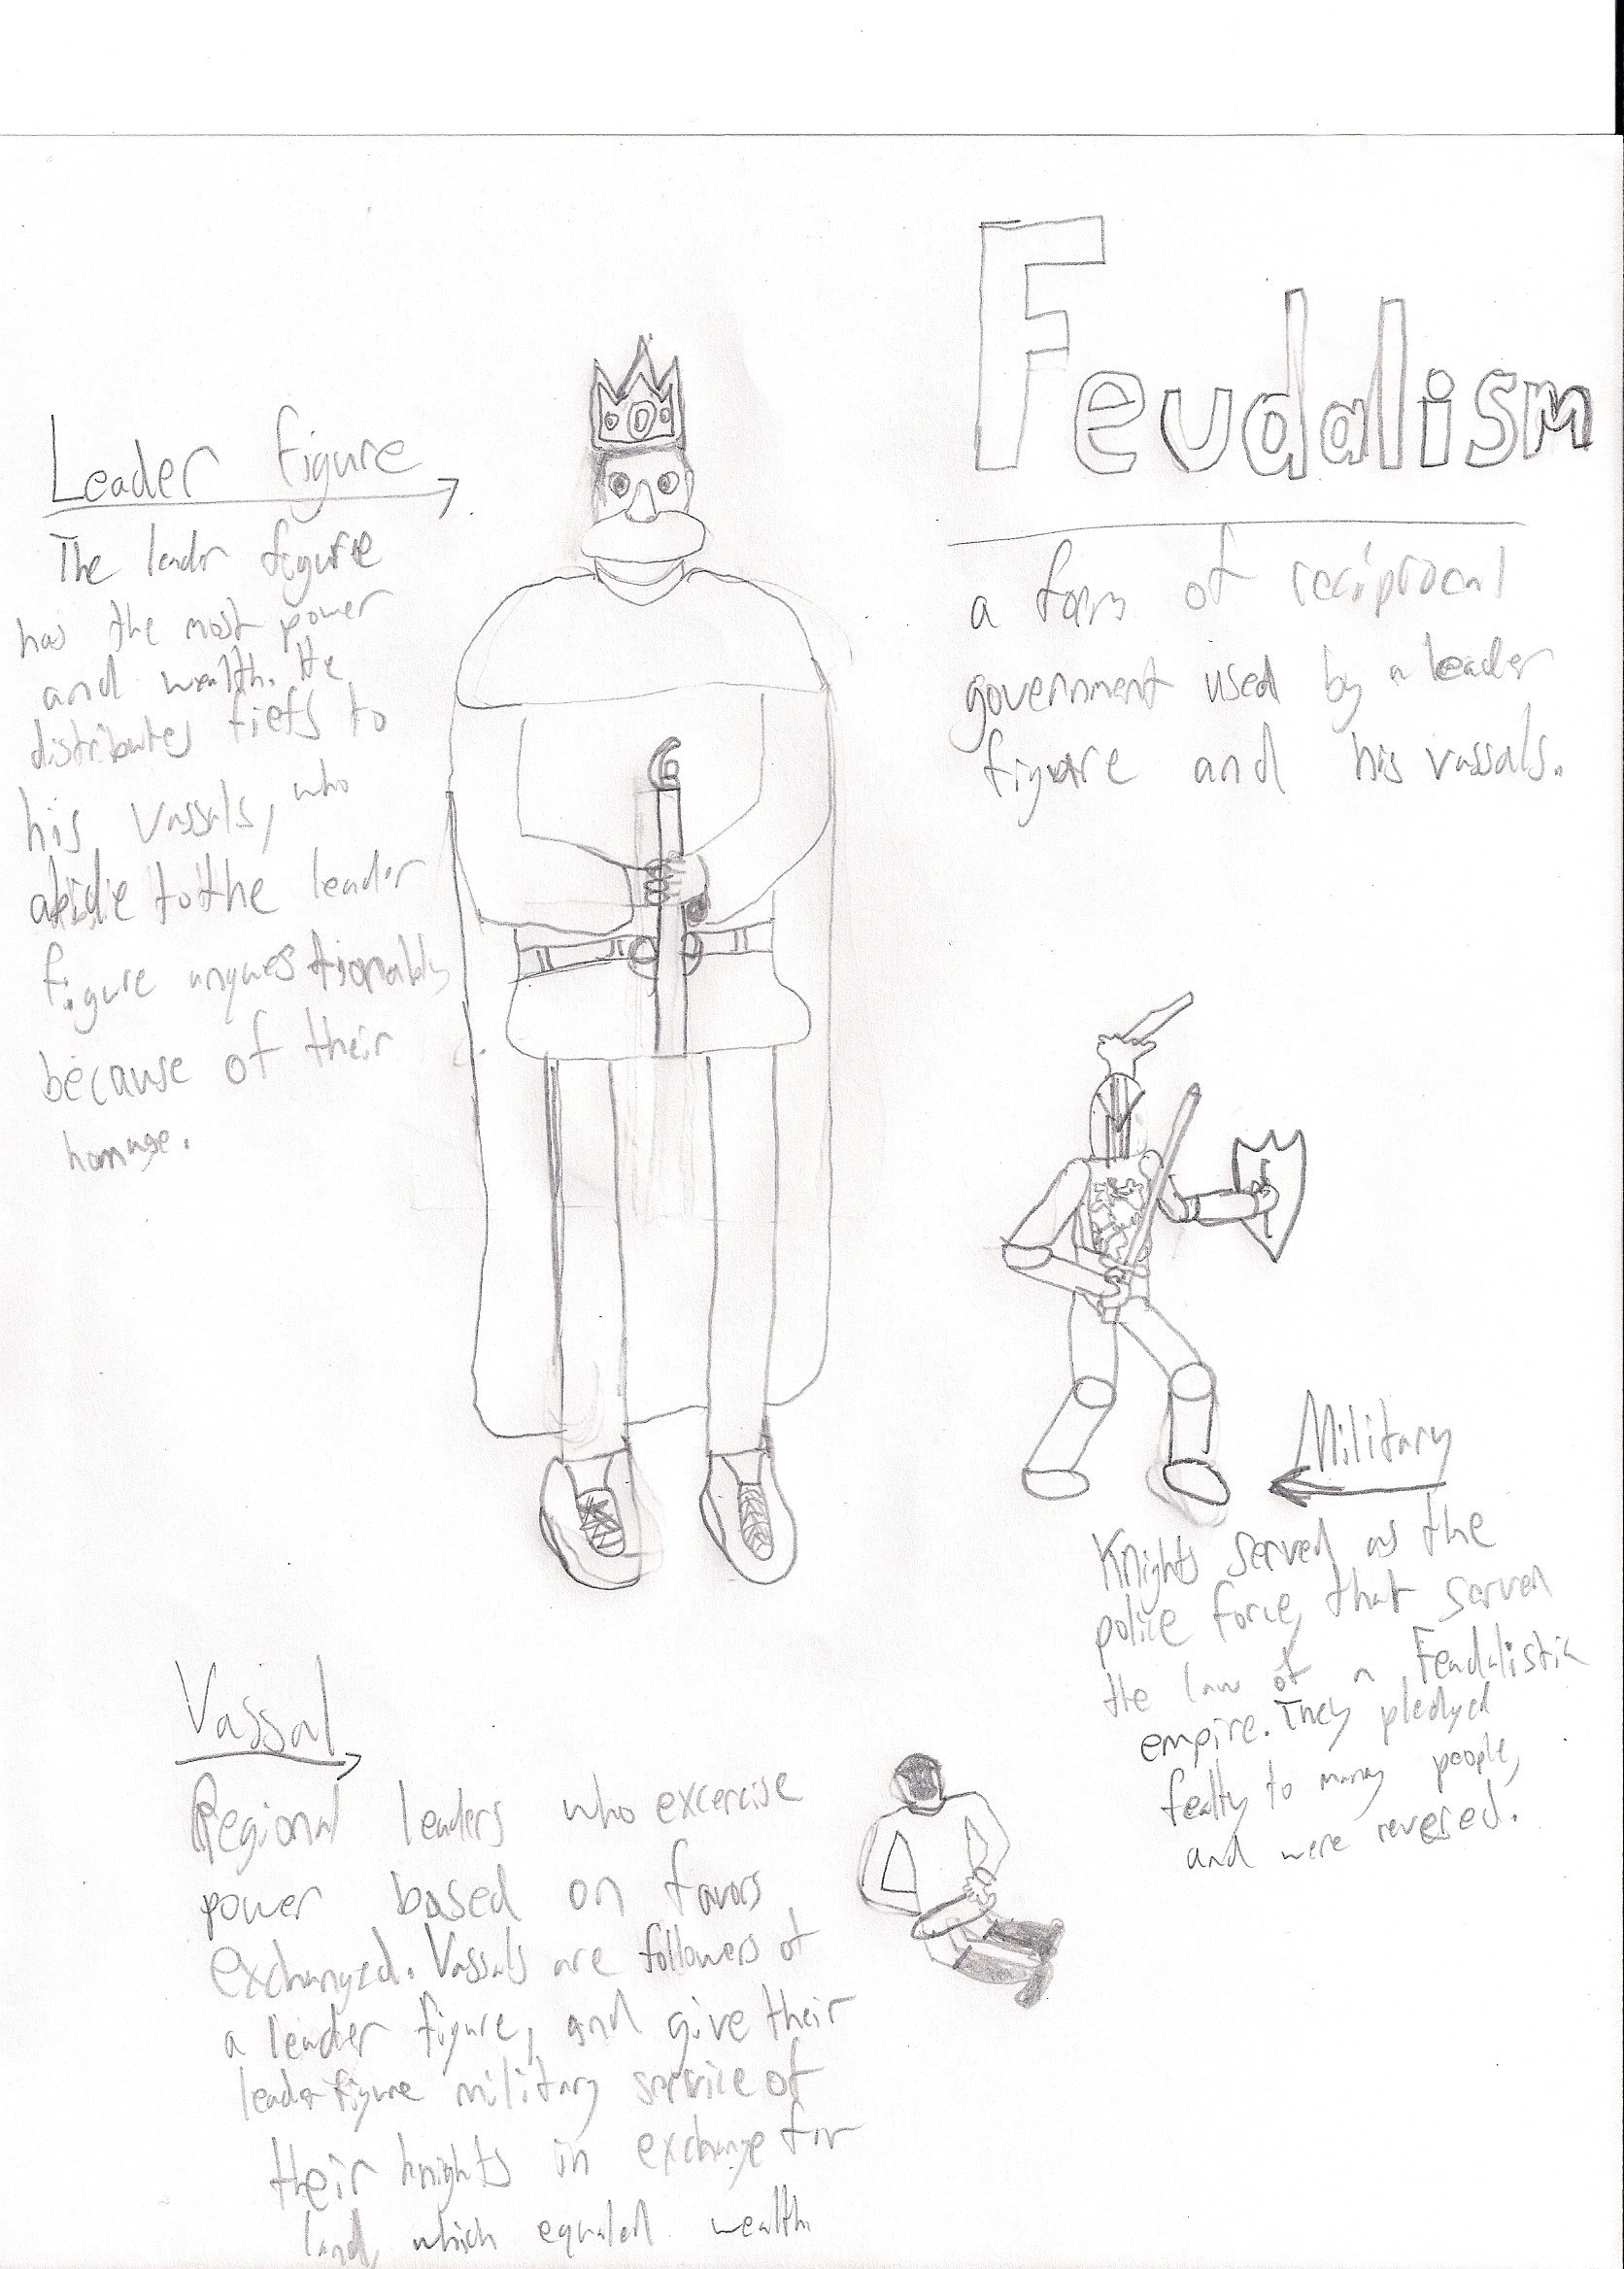 Feudalism
a form of reciprocal
government used by a leader
figure and his vassals.
Leader figure
The leader figure
has the most power
and wealth. He
distributes fiefs to
his vassals, who
abide to the leader
figure unquestionably
because of their
homage.
Military
Knights served as the
police force, that served
the law of a Feudalistic
empire. They pledged
fealty to many people,
and were revered.
Vassal
Regional leaders who excercise
power based on favors
exchanged. Vassals are followers of
a leader figure, and give their
leader figure military service of
their knights in exchange for
land, which equaled wealth